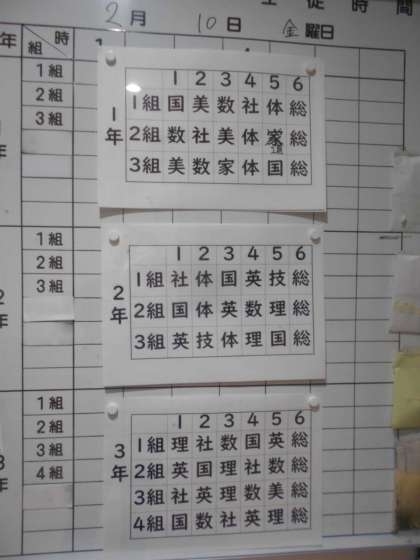 生徒時間
2月 10日 金曜日
年 組 時 1
1組
2組
3組
1年
1 2 3 4 5 6
1組 国 美 数 社 体 総
2組 数 社 美 体 家 総
3組 美 数 家 体 国 総
1組
2組
3組
2年
1 2 3 4 5 6
1組 社 体 国 英 技 総
2組 国 体 英 数 理 総
3組 英 技 体 理 国 総
1組
2組
3組
4組
3年
1 2 3 4 5 6
1組 理 社 数 国 英 総
2組 英 国 理 社 数 総
3組 社 英 理 数 美 総
4組 国 数 社 英 理 総